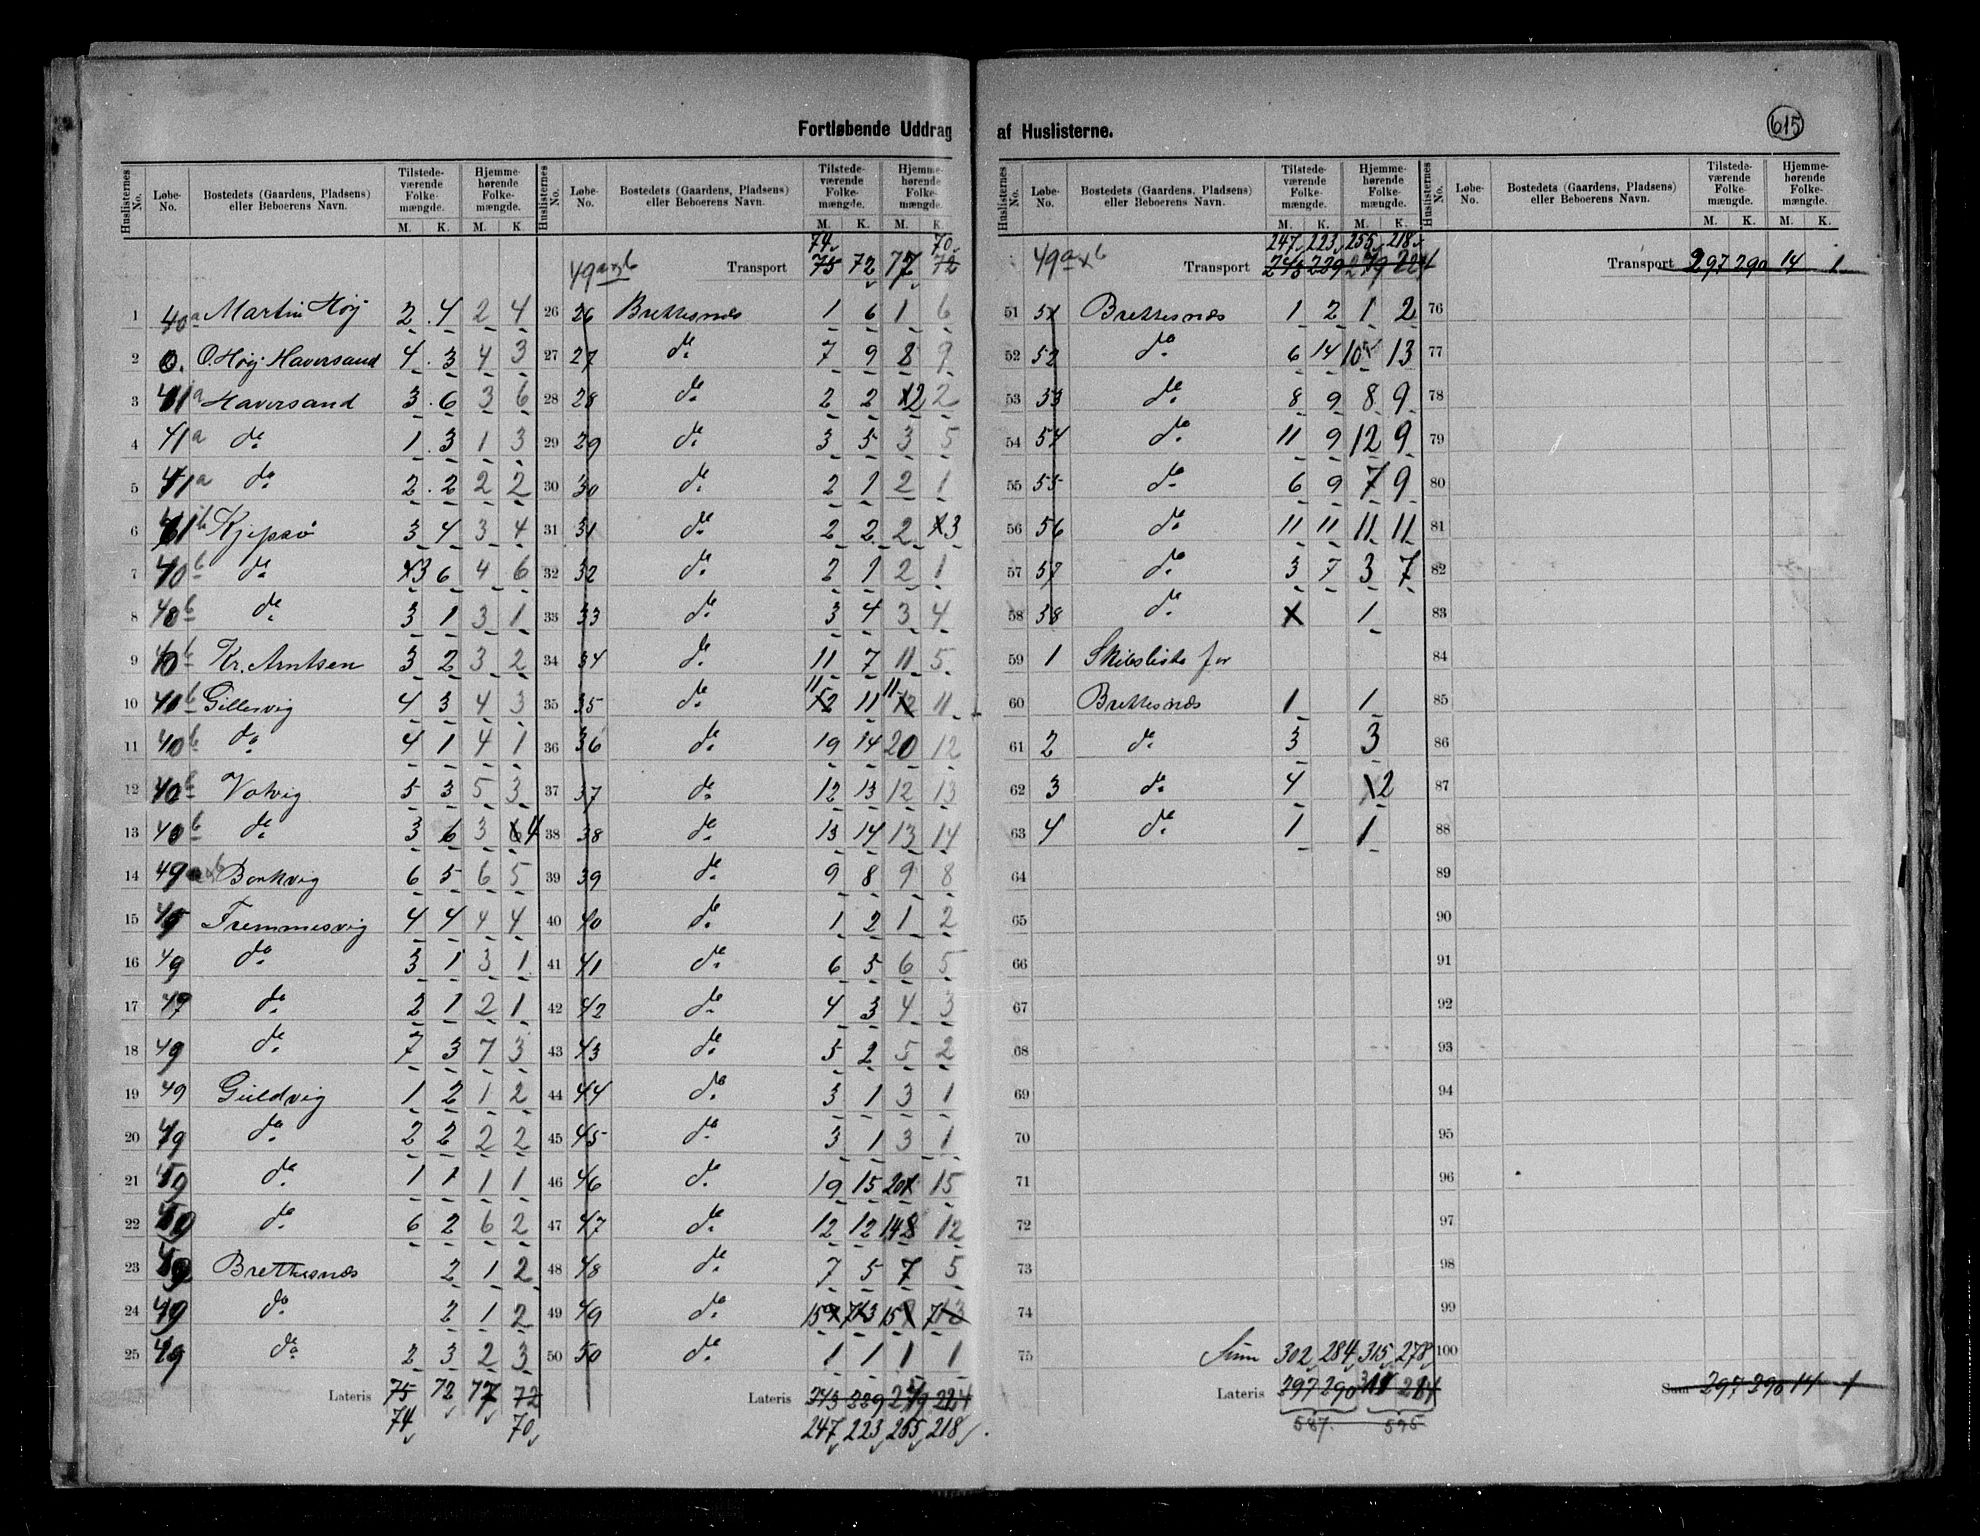 Fortløbende Uddrag af Huslisterne.
615
Huslisternes No. Løbe-No. Bostedets (Gaardens, Pladsens) eller Beboerens Navn. Tilstedeværende Folkemængde. M. K. Hjemmehørende Folkemængde. M. K.
1 40a Martin Høy 2 4 2 4
2 O. Høy Haversand 4 3 4 3
3 41a Haversand 3 6 3 6
4 41a do 1 3 1 3
5 41a do 2 2 2 2
6 Kjepsø 3 4 3 4
7 40b do 3 6 4 6
8 40b do 3 1 3 1
9 40b Kr. Arntsen 3 2 3 2
10 40b Gillesvig 4 3 4 3
11 40b do 4 1 4 1
12 40b Votvig 5 3 5 3
13 40b do 3 6 3 4
14 49 Borkvig 6 5 6 5
15 Fremmesvig 4 4 4 4
16 49 do 3 1 3 1
17 49 do 2 1 2 1
18 49 do 7 3 7 3
19 49 Guldvig 1 2 1 2
20 49 do 2 2 2 2
21 49 do 1 1 1 1
22 do 6 2 6 2
23 Brettesnæs 2 1 2
24 49 do 2 1 2
25 49 do 2 3 2 3
Lateris 75 72 77 72
74 70
Huslisternes No. Løbe-No. Bostedets (Gaardens, Pladsens) eller Beboerens Navn. Tilstedeværende Folkemængde. M. K. Hjemmehørende Folkemængde. M. K.
74 70
49a&b Transport 75 72 77 72
26 26 Brettesnæs 1 6 1 6
27 27 do 7 9 8 9
28 28 do 2 2 2 2
29 29 do 3 5 3 5
30 30 do 2 1 2 1
31 31 do 2 2 2 3
32 32 do 2 1 2 1
33 33 do 3 4 3 4
34 34 do 11 7 11 5
35 35 do 11 12 11 11 12 11
36 36 do 19 14 20 12
37 37 do 12 13 12 13
38 38 do 13 14 13 14
39 39 do 9 8 9 8
40 40 do 1 2 1 2
41 41 do 6 5 6 5
42 42 do 4 3 4 3
43 43 do 5 2 5 2
44 44 do 3 1 3 1
45 45 do 3 1 3 1
46 46 do 19 15 20 15
47 47 do 12 12 12
48 48 do 7 5 7 5
49 49 do 15 7 15 7
50 50 do 1 1 1 1
Lateris 229
247 223 255 218
Huslisternes No. Løbe-No. Bostedets (Gaardens, Pladsens) eller Beboerens Navn. Tilstedeværende Folkemængde. M. K. Hjemmehørende Folkemængde. M. K.
247 223 255 218
Transport 229
51 51 Brettesnæs 1 2 1 2
52 52 do 6 14 10 13
53 53 do 8 9 8 9
54 54 do 11 9 12 9
55 55 do 6 9 7 9
56 56 do 11 11 11 11
57 57 do 3 7 3 7
58 58 do 1
59 1 Skibsliste for
60 Brettesnæs 1 1
61 2 do 3 3
62 3 do 4 2
63 4 do 1 1
64
65
66
67
68
69
70
71
72
73
74
75 Sum 302 284 315 278
Lateris 297 290
587. 595
Huslisternes No. Løbe-No. Bostedets (Gaardens, Pladsens) eller Beboerens Navn. Tilstedeværende Folkemængde. M. K. Hjemmehørende Folkemængde. M. K.
Transport 297 290 14 1
76
77
78
79
80
81
82
83
84
85
86
87
88
89
90
91
92
93
94
95
96
97
98
99
100
Sum 297 290 14 1